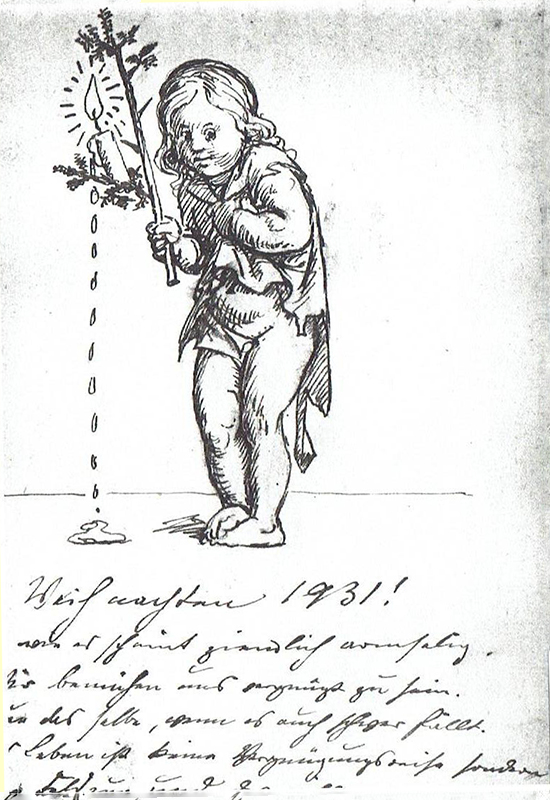 Weihnachten 1931!
wie es scheint ziemlich armselig.
bemühen uns vergnügt zu sein.
das selbe, wenn es auch schwer fällt.
Leben ist keine Vergnügungsreise sondern
und